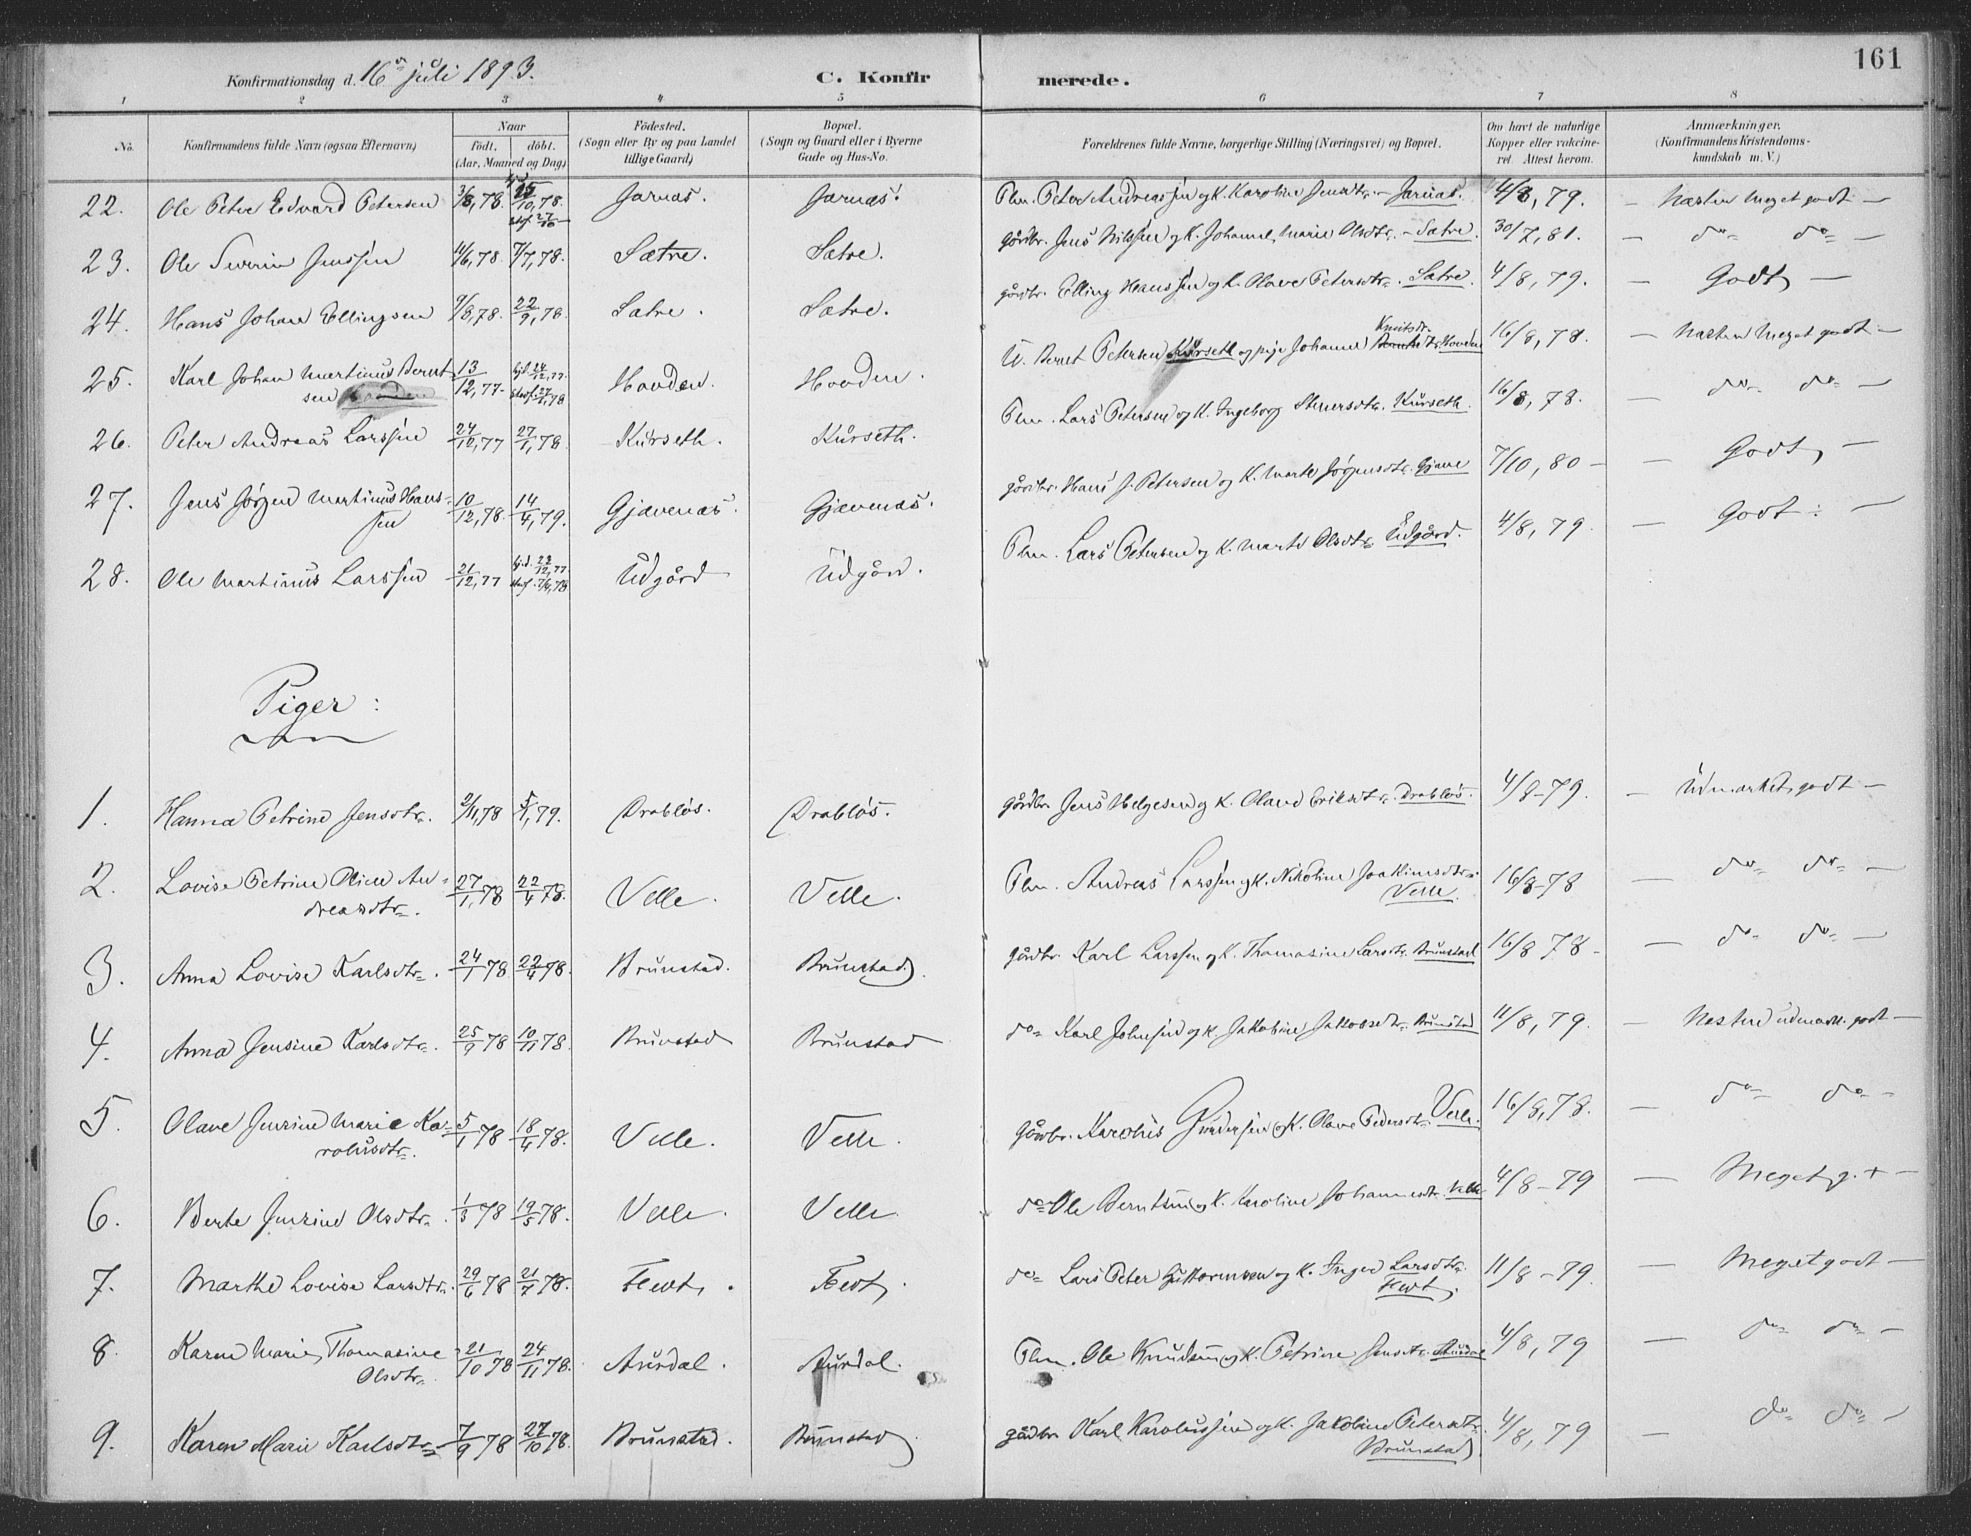 161
Konfirmationsdag d. 16de juli 1893.
C. Konfirmerede.
1 2 3 4 5 6 7 8
No.
Konfirmandens fulde Navn (ogsaa Efternavn)
Naar
födt. döbt.
(Aar, Maaned og Dag)
Födested.
(Sogn eller By og paa Landet tillige Gaard)
Bopæl.
(Sogn og Gaard eller i Byerne Gade og Hus-No.
Forældrenes fulde Navne, borgerlige Stilling (Næringsvei) og Bopæl.
Om havt de naturlige Kopper eller vakcineret. Attest herom.
Anmærkninger.
(Konfirmandens Kristendomskundskab m. V.)
22. Ole Peter Edvard Petersen 3/8, 78. /10, 78. Jarnæs. Jarnæs. Plm. Peter Andreassen og K. Karoline Jensdtr. – Jarnæs. 4/8, 79. – Næsten meget godt –
23. Ole Severin Jenssen 4/6, 78. 7/7, 78. Sætre. Sætre. gårdbr. Jens Nilssen og K. Johanne Marie Olsdtr. – Sætre. 30/7, 81. – do do –
24. Hans Johan Ellingsen 9/8, 78. 22/9, 78. Sætre. Sætre. gårdbr. Elling Hanssen og K. Olave Petersdtr. Sætre. 4/8, 79. – Godt –
25. Karl Johan Martinus Berntsen 13/12, 77. Hovden. Hovden. U. Bernt Petersen Kurseth og pige Johanne Knutsdtr. Hovden 16/8, 78. – Næsten meget godt –
26. Peter Andreas Larssen 24/12, 77 27/1, 78. Kurseth. Kurseth. Plm. Lars Petersen og K. Ingeborg Steversdtr. Kurseth. 16/8, 78. – do do –
27. Jens Jørgen Martinus Hanssen 10/12, 78. 14/4, 79. Gjævenæs. Gjævenæs. gårdbr. Hans J. Petersen og K. Marte Jørgensdtr. Gjæve 7/10, 80 – – Godt –
28. Ole Martinus Larssen 21/12, 77 Udgård Udgård. Plm. Lars Petersen og K. Marte Olsdtr. Udgård. 4/8, 79. – Godt –
Piger:
1. Hanna Petrine Jensdtr. 2/11, 78 5/1, 79. Drabløs. Drabløs. gårdbr. Jens Helgesen og K. Olave Eriksdtr. Drabløs. 4/8–79. – Udmærket godt –
2. Lovise Petrine Oline Andreasdtr. 27/1, 78 22/4 78. Velle. Velle. Plm. Andreas Larssen og K. Nikoline Joakimsdtr. Velle. 16/8–78 – do do –
3. Anna Lovise Karlsdtr. 24/1 78 22/4 78. Brunstad. Brunstad. gårdbr. Karl Larssen og K. Thomasine Larsdtr. Brunstad 16/8 78 – – do do –
4. Anna Jensine Karlsdtr. 25/9 78 10/11 78. Brunstad Brunstad do Karl Johnsen og K. Jakobine Jakobsdtr. Brunstad 11/8, 79. – Næsten udmærk. godt –
5. Olave Jensine Marie Karolusdtr. 5/1 78 18/4 78. Velle. Velle. gårdbr. Karolus Gundersen og K. Olave Pedersdtr. Velle. 16/8, 78. – do do
6. Berte Jensine Olsdtr. 1/3 78 19/5 78. Velle. Velle. do Ole Berntsen og K. Karoline Johannesdtr. Velle 4/8–79 – Meget g. t –
7. Marthe Lovise Larsdtr. 29/6 78 21/7 78. Fevt. Fevt. do Lars Peter Guttormsen og K. Inger Larsdtr. Fevt. 11/8–79. – Meget godt –
8. Karen Marie Thomasine Olsdtr. 21/10 78 24/11 78. Aursdal. Aursdal. Plm. Ole Knudsen og K. Petrine Jensdtr. Aursdal 4/8, 79 – do do –
9. Karen Marie Karlsdtr. 7/9 78 27/10 78. Brunstad. Brunstad gårdbr. Karl Karolussen og K. Jakobine Petersdtr. Brunstad 4/8, 79 – do do –